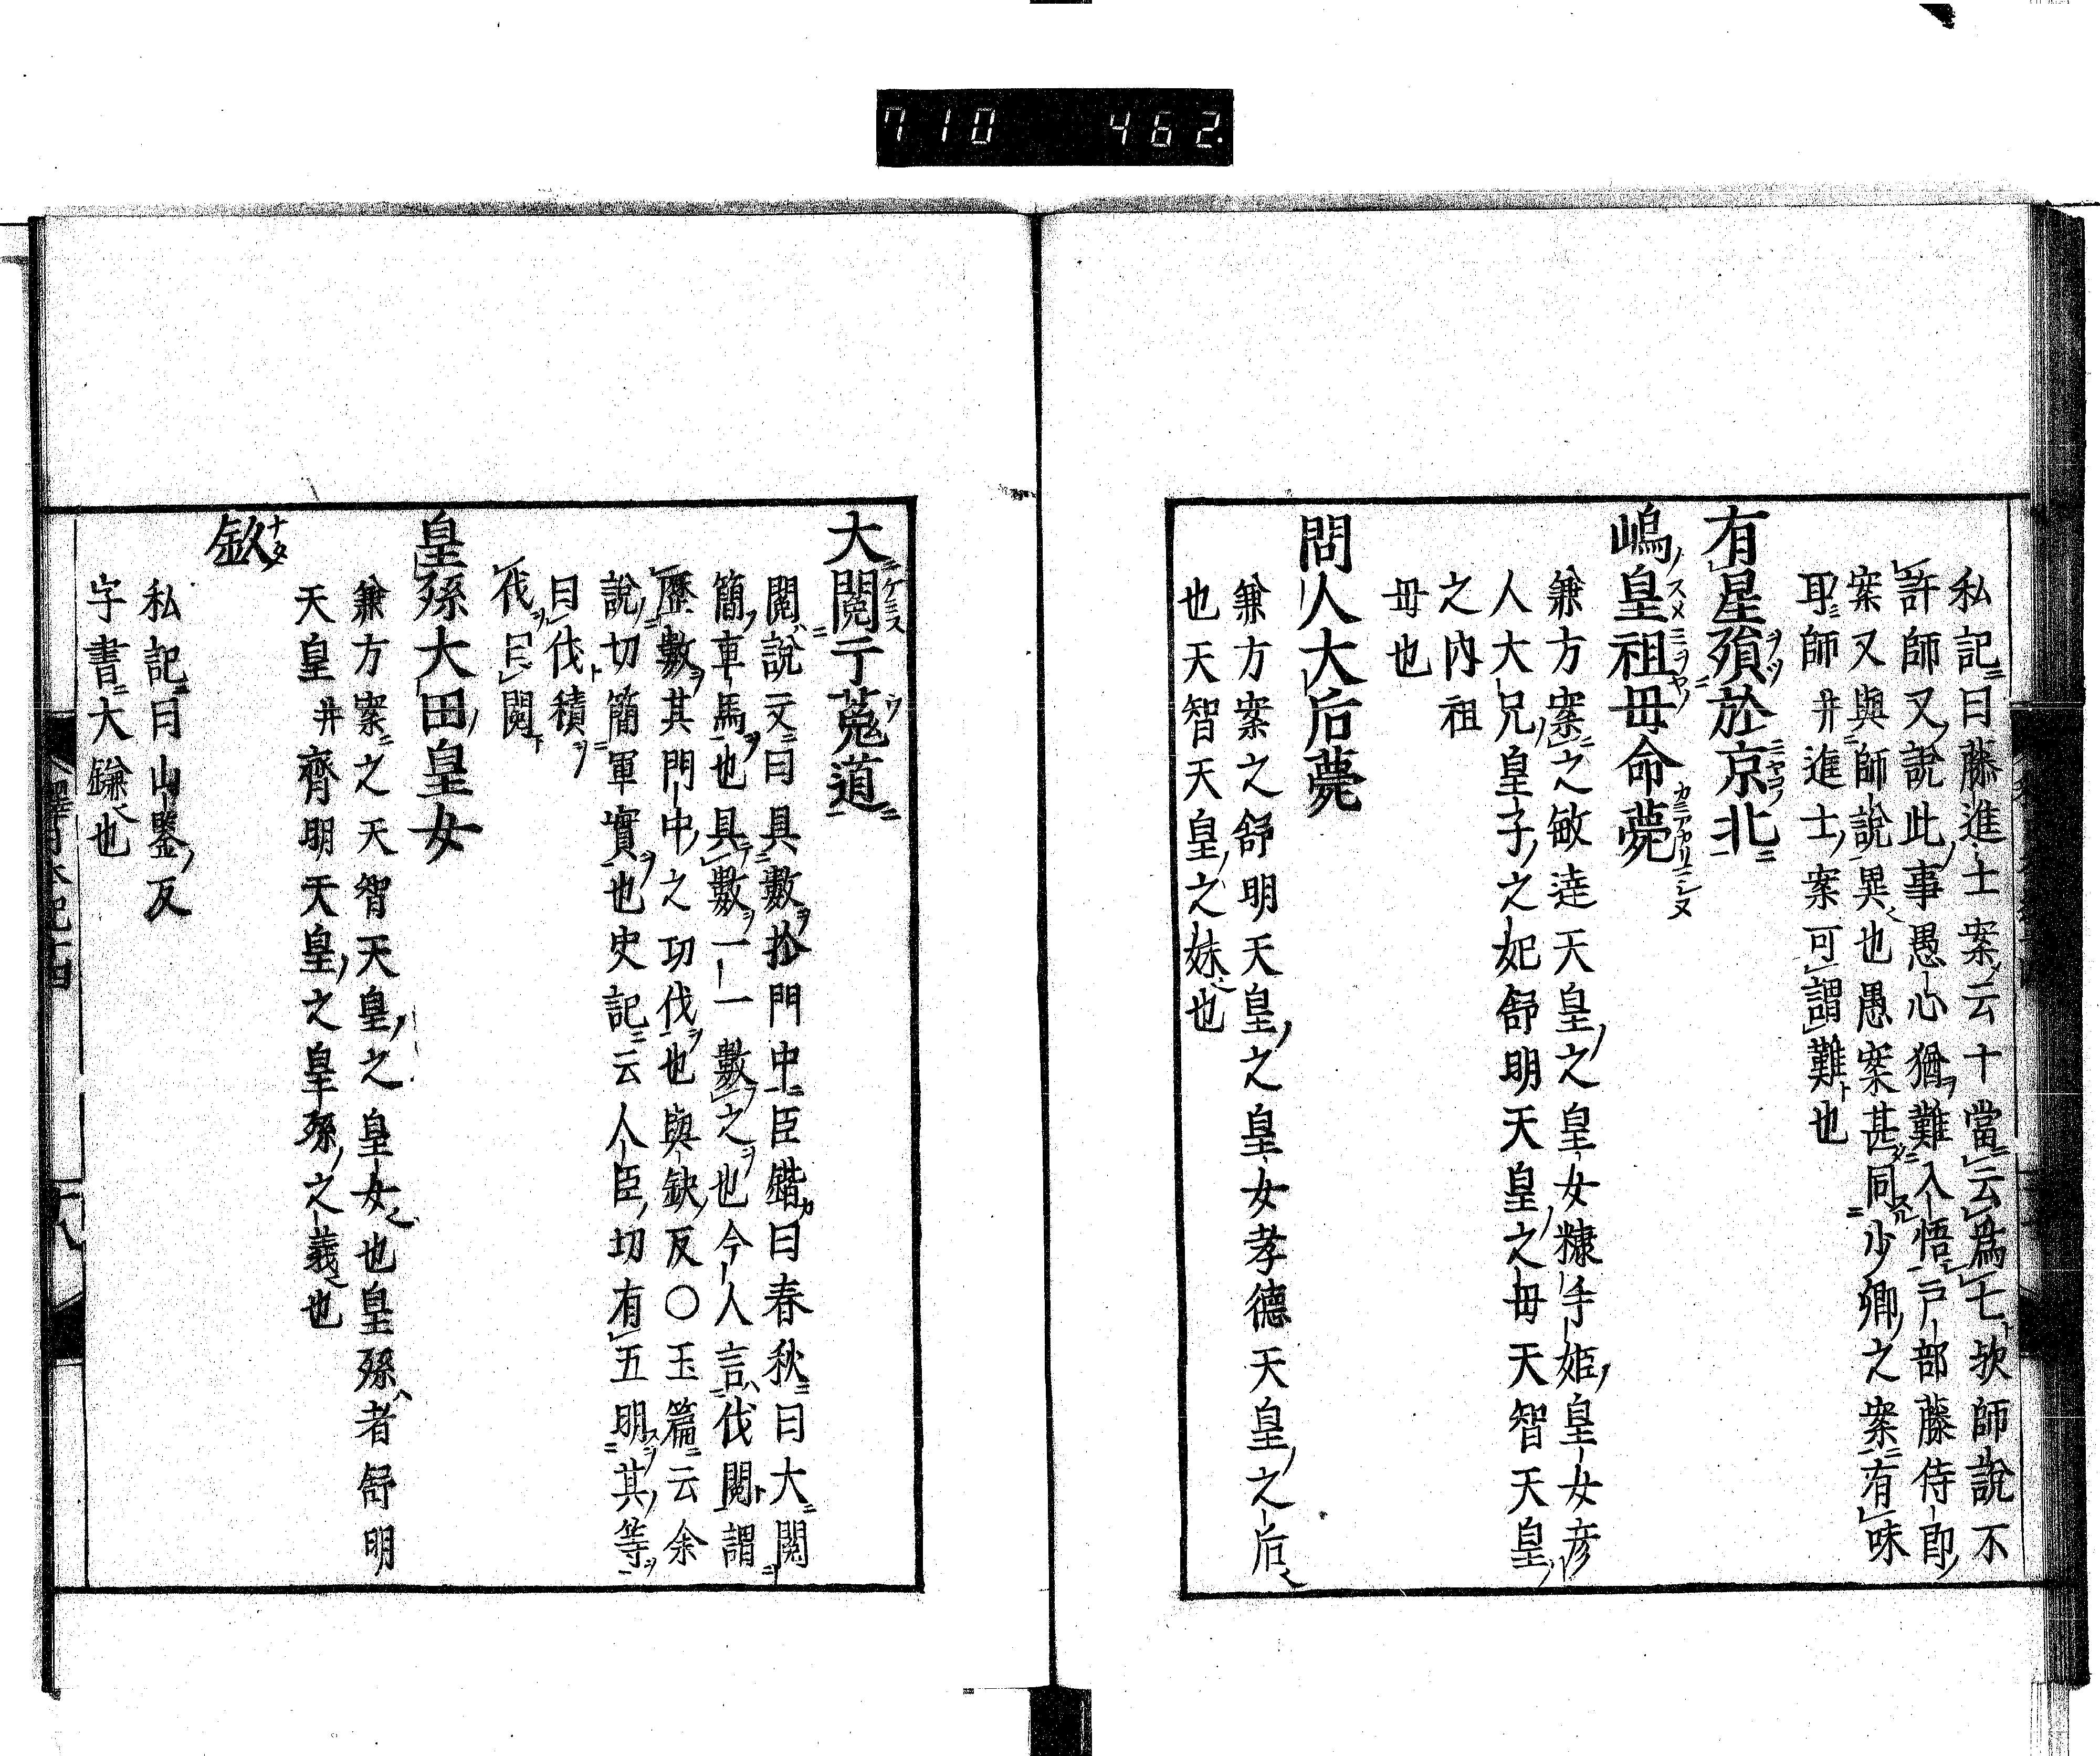 710 462.
私記曰藤進士案云十當云爲七欤師說不
許師又說此事愚心猶難入悟戸部藤侍郎
案又與師說異也愚案甚同少卿之案有味
耳師幷進士案可謂難也
有星殞於京北
嶋皇祖母命薨
兼方案之敏達天皇之皇女糠手姫皇女彦
人大兄皇子之妃舒明天皇之母天智天皇
之内祖
母也
間人大后薨
兼方案之舒明天皇之皇女孝德天皇之后
也天智天皇之妹也
大閲于菟道
閲說文曰具數於門中臣鍇曰春秋曰大閲
簡車馬也具數一一數之也今人言伐閲謂
歷數其門中之功伐也與缺反〇玉篇云余
說切簡軍實也史記云人臣切有五明其等
曰伐積
伐曰閲
皇孫大田皇女
兼方案之天智天皇之皇女也皇孫者舒明
天皇幷齊明天皇之皇孫之義也
釤
私記曰山鑒反
字書大鎌也
釋日本紀十四
十八